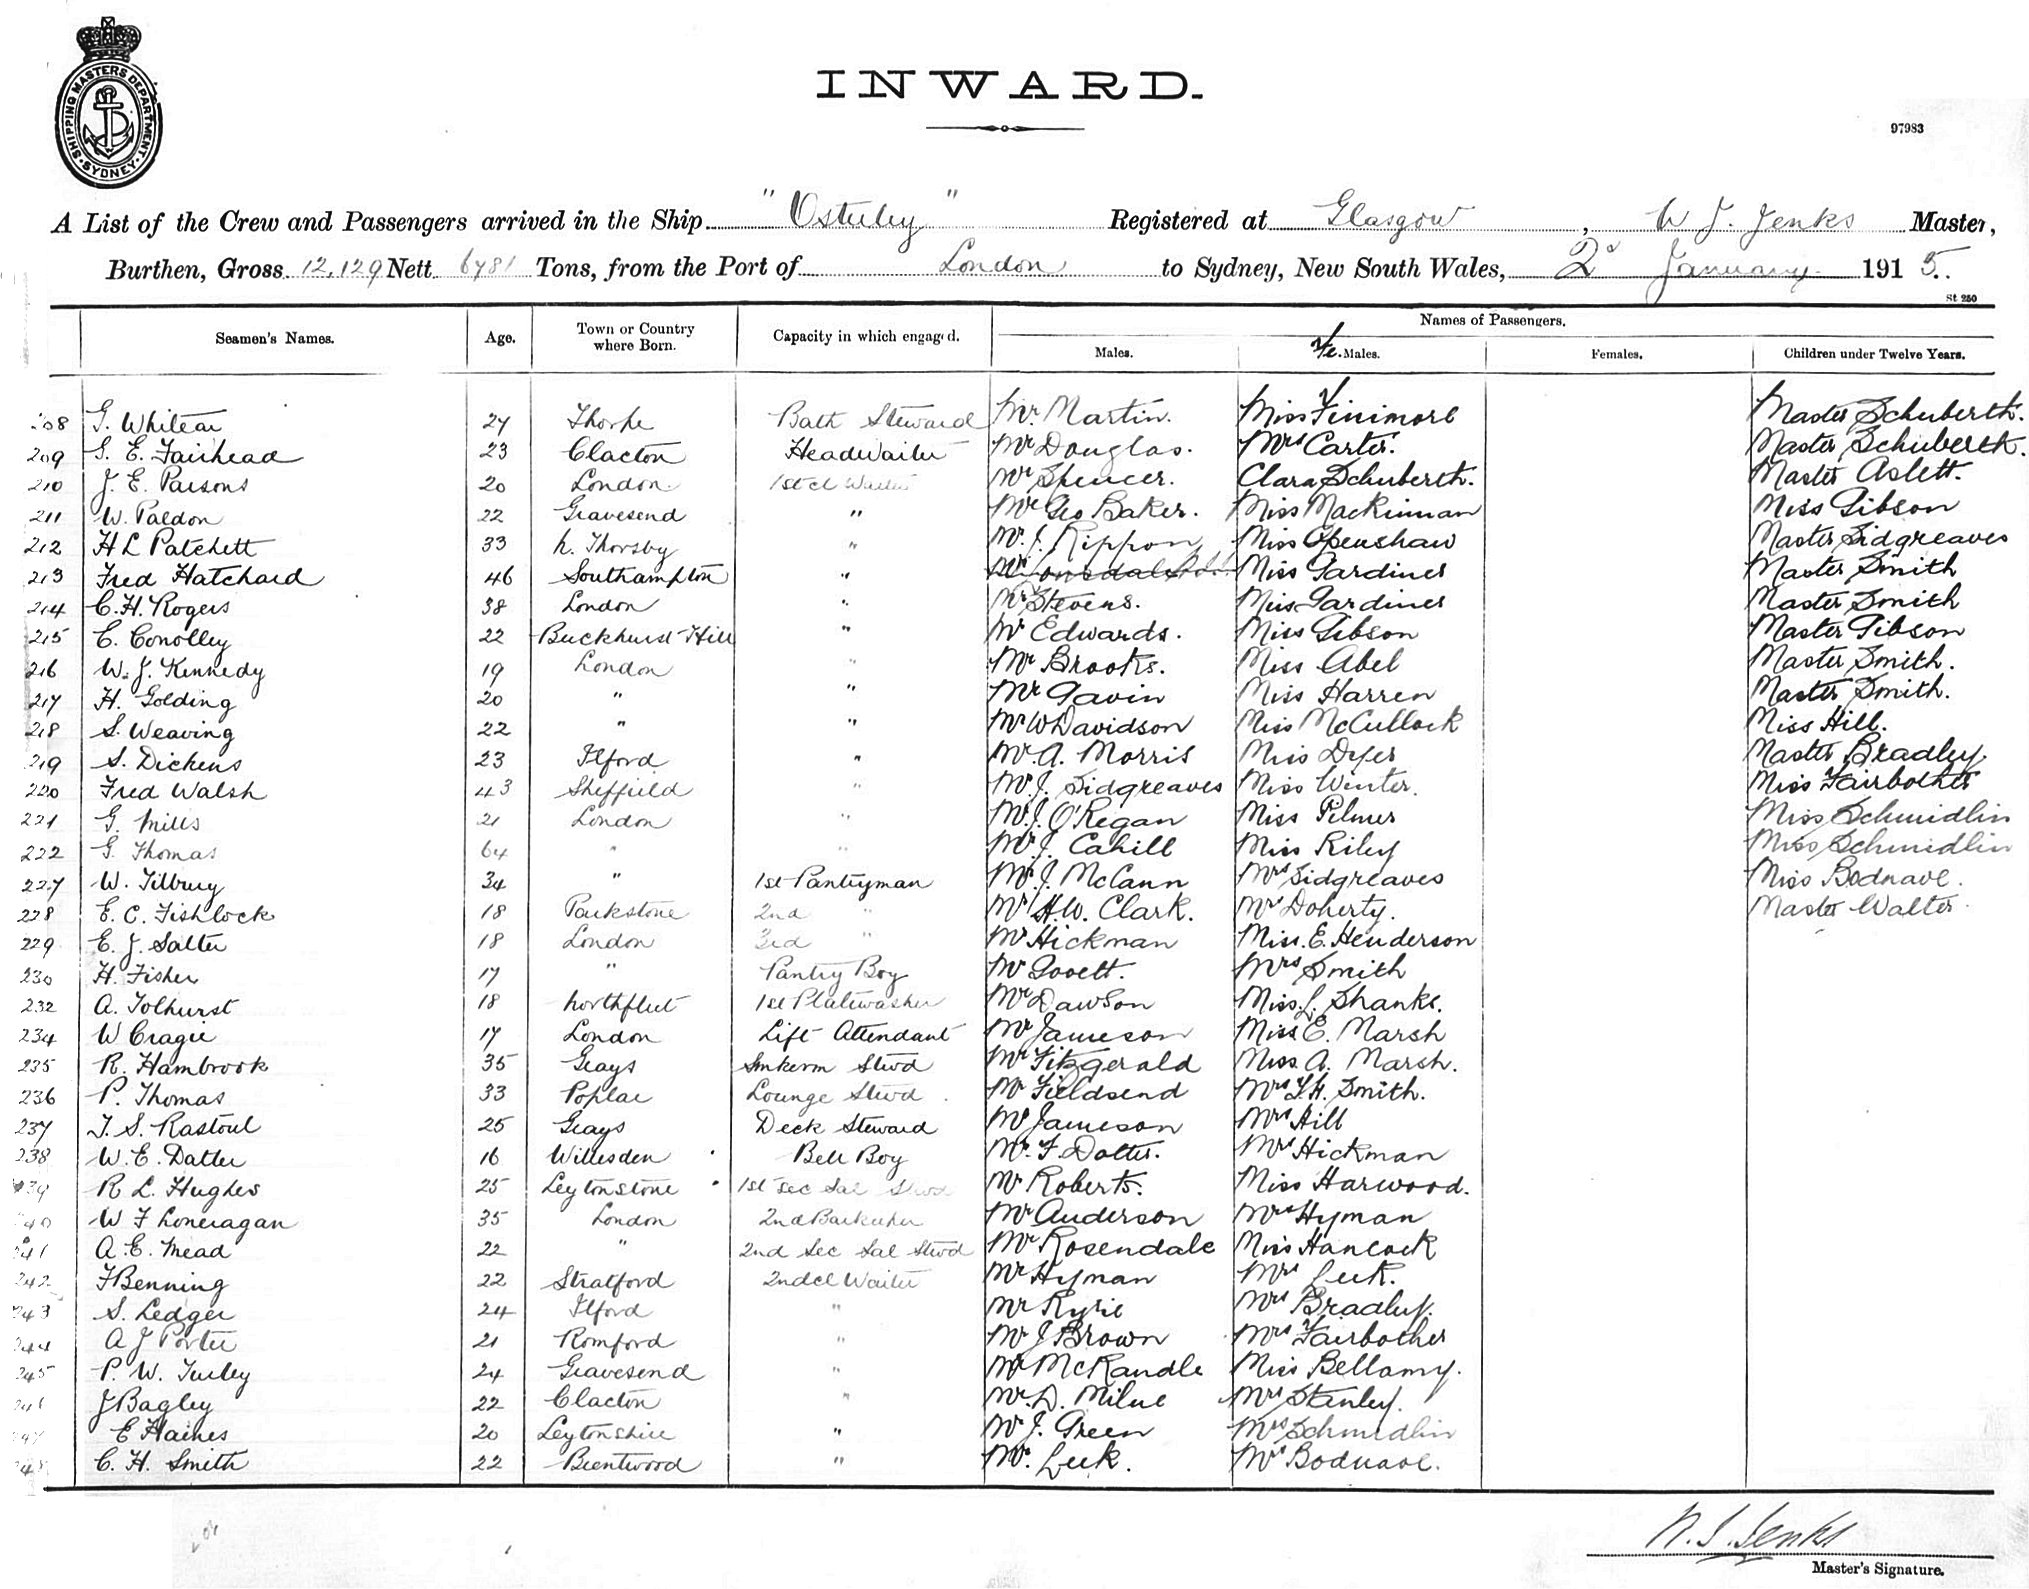 SHIPPING MASTERS DEPARTMENT. SYDNEY
INWARD.
97983
A List of the Crew and Passengers arrived in the Ship "Osterley" Registered at Glasgow, W J. Jenks Master,
Burthen, Gross 12,129 Nett 6781 Tons, from the Port of London to Sydney, New South Wales, 2d January 1915.
St 250
Seamen's Names. Age. Town or Country where Born. Capacity in which engaged. Names of Passengers.
Males. Fe. Males. Females. Children under Twelve Years.
208 G. Whitear 27 Thorpe Bath Steward Mr Martin. Miss Finimore Master Schuberth.
209 G. E. Fairhead 23 Clacton Headwaiter Mr Douglas. Mrs Carter. Master Schuberth.
210 J. E. Parsons 20 London 1st cl Waiter Mr Spencer. Clara Schuberth. Master Aslett.
211 W. Paldon 22 Gravesend " Mr Geo Baker. Miss Mackinnan Miss Gibson
212 H L Patchett 33 N. Thorsby " Mr. J. Rippon Miss Openshaw Master Sidgreaves
213 Fred Hatchard 46 Southampton " Miss Gardiner Master Smith
214 C. H. Rogers 38 London " Mr Stevens. Miss Gardiner Master Smith
215 C. Conolley 22 Buckhurst Hill " Mr Edwards. Miss Gibson Master Gibson
216 W. J. Kennedy 19 London " Mr Brooks. Miss Abel Master Smith.
217 H. Golding 20 " " Mr Gavin Miss Harren Master Smith.
218 S. Weaving 22 " " Mr W Davidson Miss McCullock Miss Hill.
219 S. Dickens 23 Ilford " Mr. A. Morris Miss Dyer Master Bradley
220 Fred Walsh 43 Sheffield " Mr. J. Sidgreaves Miss Winter. Miss Fairbother
221 G. Mills 21 London " Mr. J. O'Regan Miss Pilmer Miss Schmidlin
222 G. Thomas 64 " " Mr. J. Cahill Miss Riley Miss Schmidlin
227 W. Tilbury 34 " 1st Pantryman Mr. J. McCann Mrs Sidgreaves Miss Bodnave.
228 E. C. Fishlock 18 Parkstone 2nd " Mr H. W. Clark. Mrs Doherty. Master Walter
229 E. J. Salter 18 London 3rd " Mr Hickman Miss. E. Henderson
230 H. Fisher 17 " Pantry Boy Mr Govett. Mrs Smith
232 A. Tolhurst 18 Northfleet 1st Platewasher Mr Dawson Miss L. Shanks.
234 W Cragie 17 London Lift Attendant Mr Jameson Miss E. Marsh
235 R. Hambrook 35 Grays Smkerm Stwd Mr Fitzgerald Miss. A. Marsh.
236 P. Thomas 33 Poplar Lounge Stwd. Mr Fieldsend Mrs T. H. Smith.
237 J. S. Rastoul 25 Grays Deck Steward Mr Jameson Mrs Hill
238 W. E. Datter 16 Willesden Bell Boy Mr. F Datter. Mrs Hickman
239 R L. Hughes 25 Leytonstone 1st Sec Sal Stwd Mr Roberts. Miss Harwood.
240 W F Loneragan 35 London 2nd Barkeeper Mr Anderson Mrs Hyman
241 A. E. Mead 22 " 2nd Sec Sal Stwd Mr Rosendale Miss Hancock
242 F Benning 22 Stratford 2nd cl Waiter Mr Hyman Mrs Leek.
243 S. Ledger 24 Ilford " Mr Kyrie Mrs Bradley.
244 A J Porter 21 Romford " Mr J Brown Mrs Fairbother
245 P. W. Turley 24 Gravesend " Mr McRandle Miss Bellamy.
246 J Bagley 22 Clacton " Mr. D. Milne Mrs Stanley.
247 E Haines 20 Leytonshire " Mr J. Green Mrs Schmidlin
248 C. H. Smith 22 Brentwood " Mr. Leek. Mrs Bodnave.
W. J. Jenks
Master's Signature.